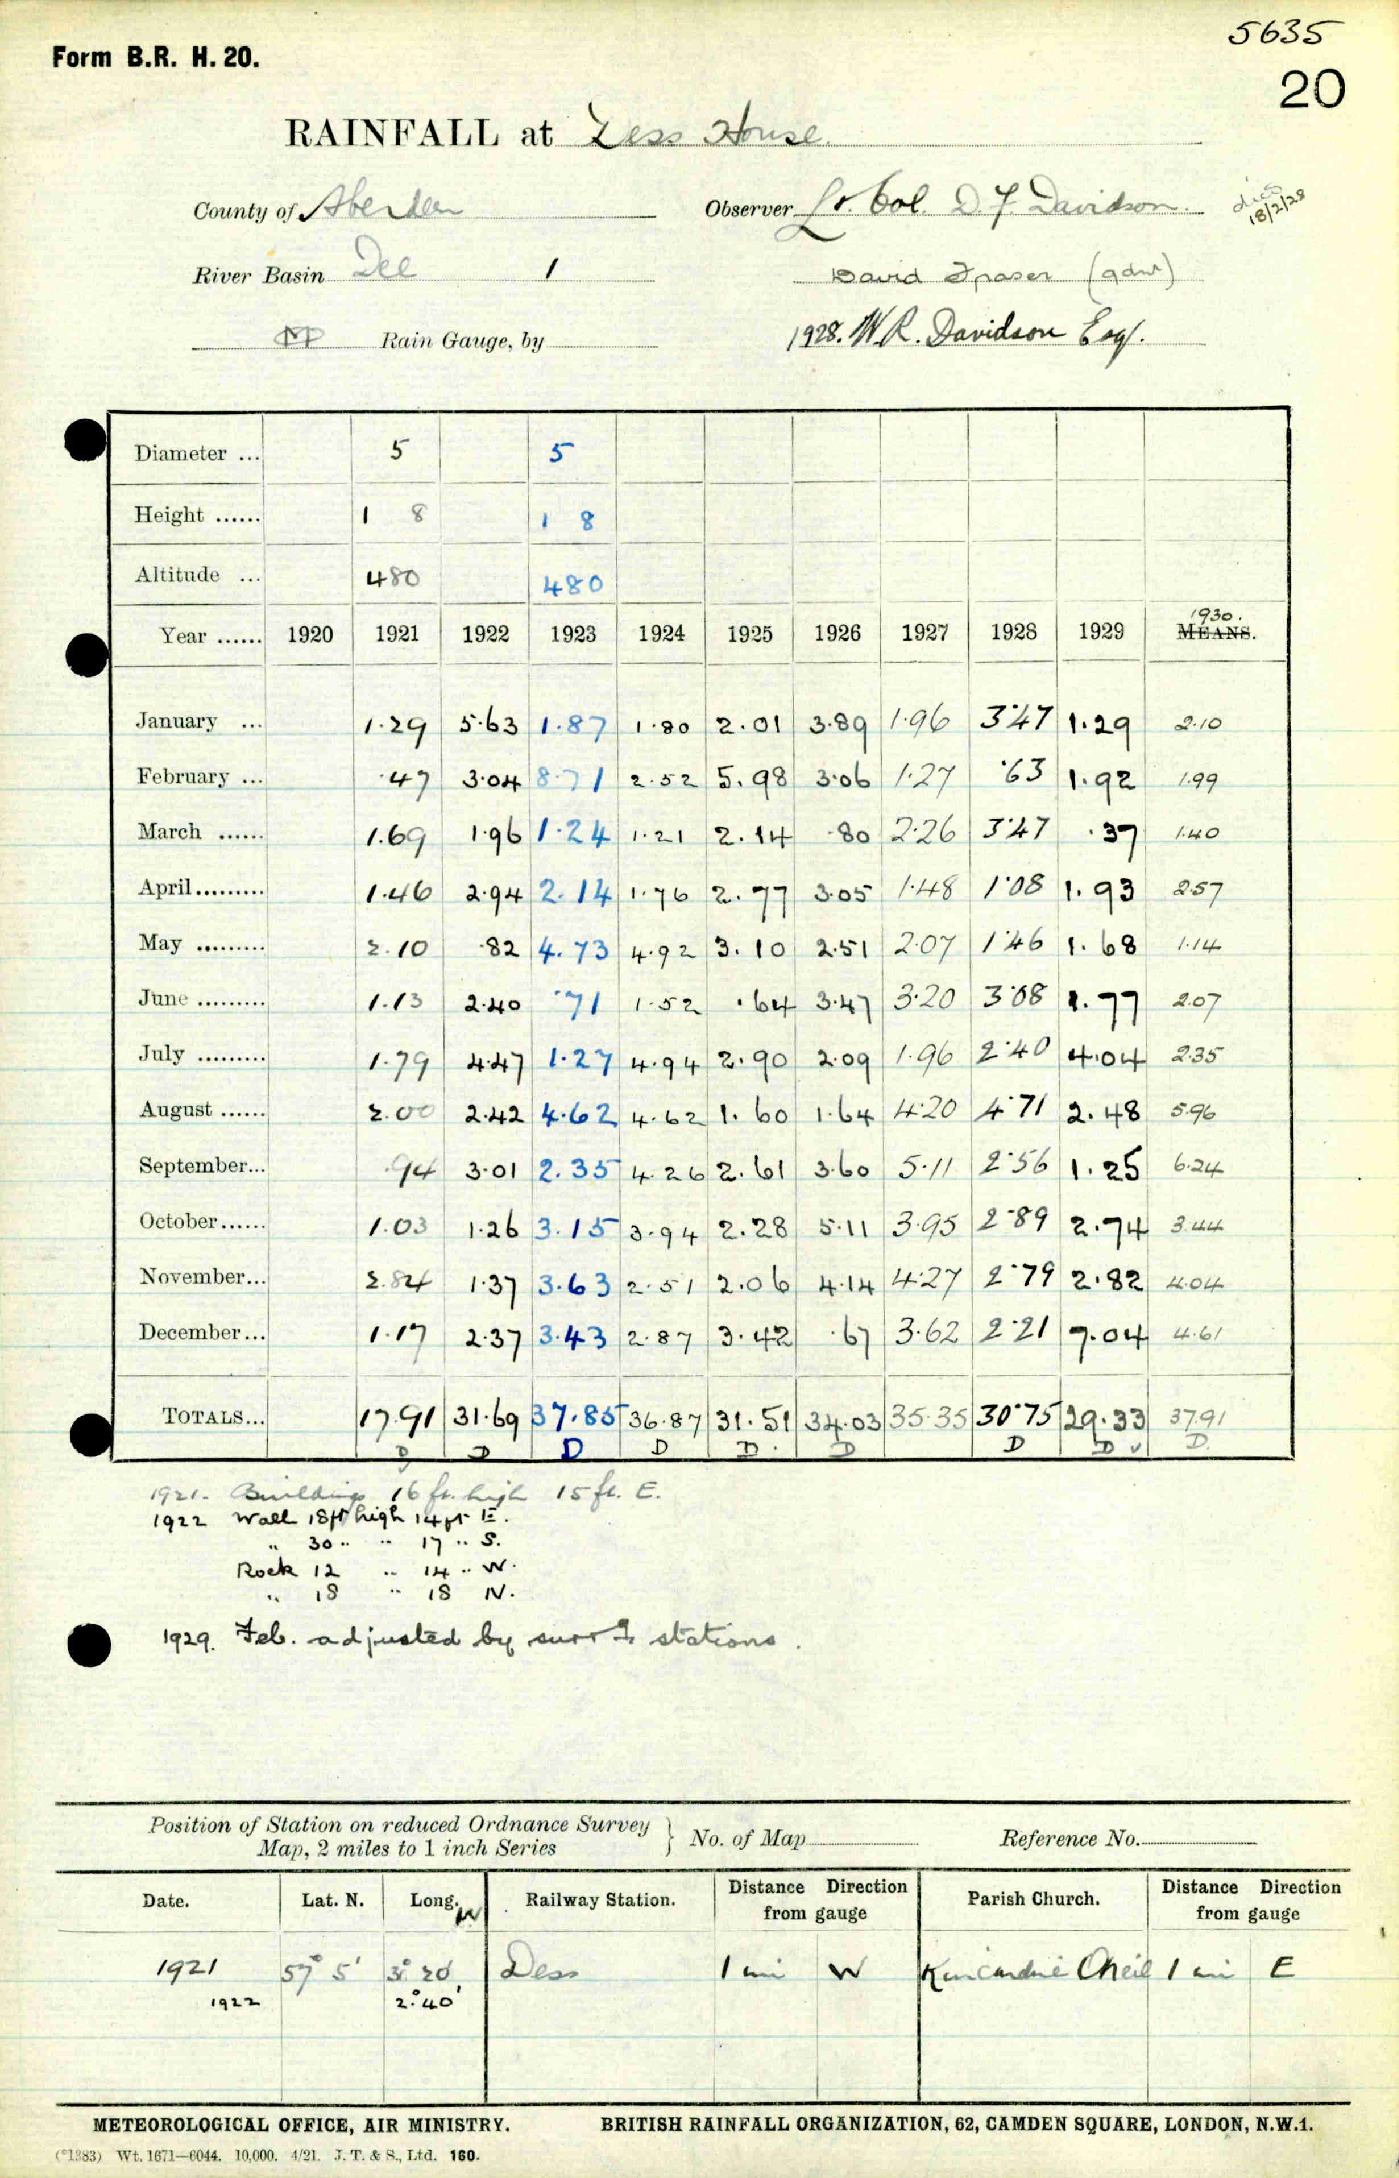 5635
Form B.R. H. 20.
20
RAINFALL at Dess House.
County of Aberdeen Observer Lt. Col. D. F. Davidson. died 18/2/28
River Basin Dee 1 David Fraser (gdnr)
MO Rain Gauge, by 1928. W. R. Davidson Esq.
Diameter ... 5 5
Height ...... 1 8 1 8
Altitude ... 480 480
1930.
Year ...... 1920 1921 1922 1923 1924 1925 1926 1927 1928 1929 MEANS.
January ... 1.29 5.63 1.87 1.80 2.01 3.89 1.96 3.47 1.29 2.10
February ... .47 3.04 8.71 2.52 5.98 3.06 1.27 .63 1.92 1.99
March ...... 1.69 1.96 1.24 1.21 2.14 .80 2.26 3.47 .37 1.40
April......... 1.46 2.94 2.14 1.76 2.77 3.05 1.48 1.08 1.93 2.57
May ......... 2.10 .82 4.73 4.92 3.10 2.51 2.07 1.46 1.68 1.14
June ......... 1.13 2.40 .71 1.52 .64 3.47 3.20 3.08 1.77 2.07
July ......... 1.79 4.47 1.27 4.94 2.90 2.09 1.96 2.40 4.04 2.35
August ...... 2.00 2.42 4.62 4.62 1.60 1.64 4.20 4.71 2.48 5.96
September... .94 3.01 2.35 4.26 2.61 3.60 5.11 2.56 1.25 6.24
October...... 1.03 1.26 3.15 3.94 2.28 5.11 3.95 2.89 2.74 3.44
November... 2.84 1.37 3.63 2.51 2.06 4.14 4.27 2.79 2.82 4.04
December... 1.17 2.37 3.43 2.87 3.42 .67 3.62 2.21 7.04 4.61
TOTALS... 17.91 31.69 37.85 36.87 31.51 34.03 35.35 30.75 29.33 37.91
D D D D D. D D D ✓ D.
1921. Buildings 16 ft. high 15 ft. E.
1922 Wall 18ft high 14ft E.
" 30 " " 17 " S.
Rock 12 " 14 " W.
" 18 " 18 N.
1929. Feb. adjusted by surrg stations.
Position of Station on reduced Ordnance Survey
Map, 2 miles to 1 inch Series } No. of Map Reference No.
Date. Lat. N. Long. W Railway Station. Distance Direction from gauge Parish Church. Distance Direction from gauge
1921 57° 5' 3° 20' Dess 1 mi W Kincardine O'Neil 1 mi E
1922 2° 40'
METEOROLOGICAL OFFICE, AIR MINISTRY. BRITISH RAINFALL ORGANIZATION, 62, CAMDEN SQUARE, LONDON, N.W.1.
(*1383) Wt. 1671—6044. 10,000. 4/21. J. T. & S., Ltd. 160.